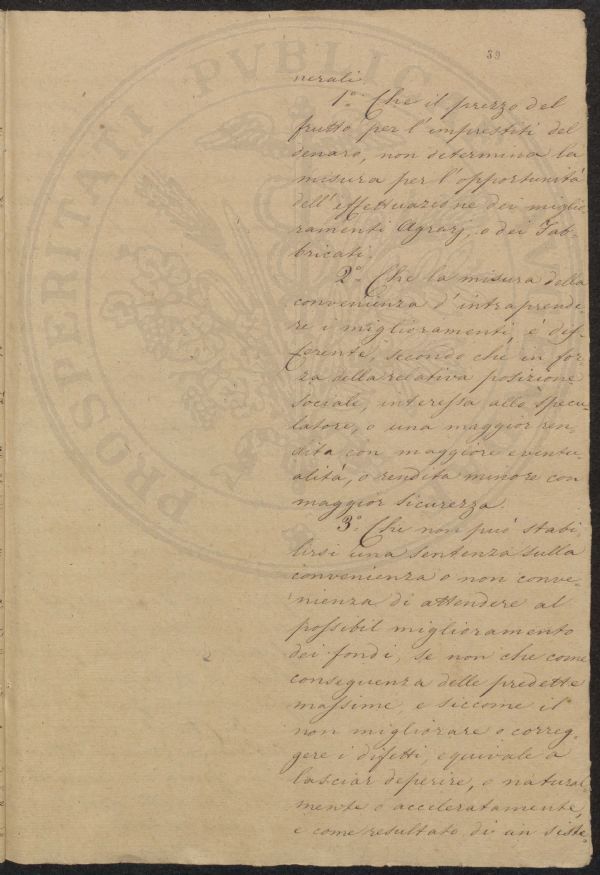 39
nerali
1º. Che il prezzo del
frutto per l'imprestiti del
denaro, non determina la
misura per l'opportunità
dell'effettuazione dei miglio-
ramenti Agrarj, o dei Fab-
bricati.
2º. Che la misura della
convenienza d'intraprende-
re i miglioramenti, é dif-
ferente, secondo che in for-
za della relativa posizione
sociale, interessa allo specu-
latore, o una maggior ren-
dita con maggiore eventu-
alità, o rendita minore con
maggior sicurezza.
3º. Che non può stabi-
lirsi una sentenza sulla
convenienza o non conve-
nienza di attendere al
possibil miglioramento
dei fondi, se non che come
conseguenza delle predette
massime, e siccome il
non migliorare o correg-
gere i difetti, equivale a
lasciar deperire, o natural-
mente o acceleratamente,
e come resultato di un siste-
PROSPERITATI PVBLIC